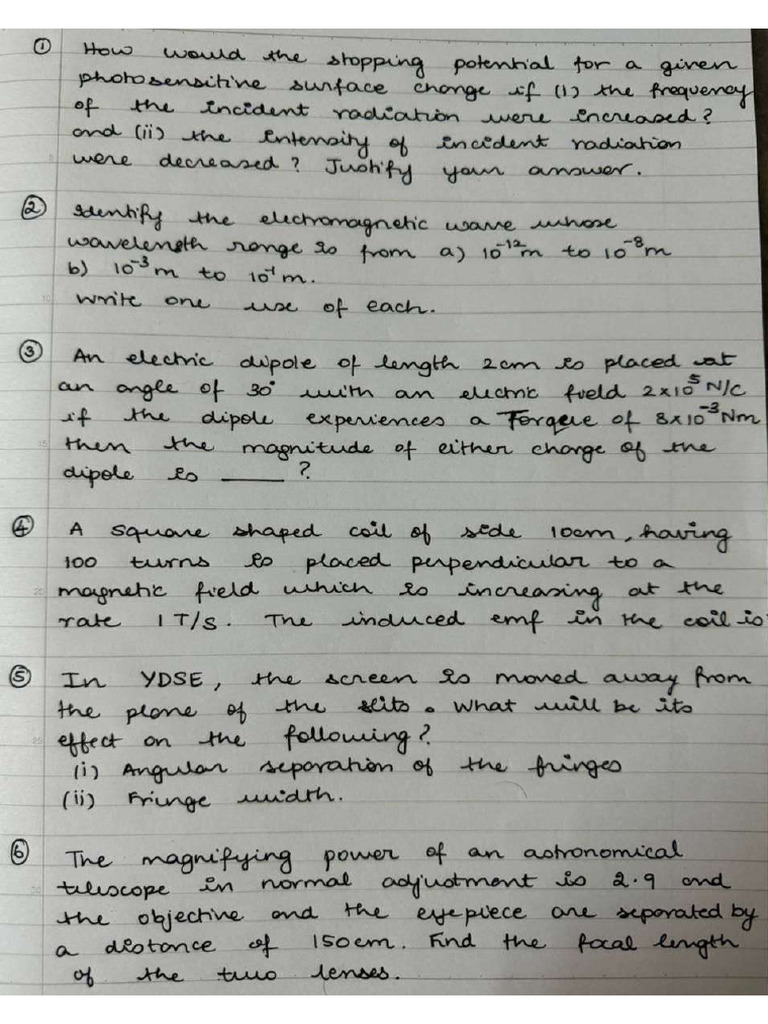 ① How would the stopping potential for a given
photosensitive surface change if (i) the frequency
of the incident radiation were increased?
and (ii) the intensity of incident radiation
were decreased? Justify your answer.
② Identify the electromagnetic wave whose
wavelength range is from a) 10⁻¹²m to 10⁻⁸m
b) 10⁻³m to 10⁻¹m.
write one use of each.
③ An electric dipole of length 2cm is placed at
an angle of 30° with an electric field 2×10⁵N/C
if the dipole experiences a Torque of 8×10⁻³Nm
then the magnitude of either charge of the
dipole is ____ ?
④ A square shaped coil of side 10cm, having
100 turns is placed perpendicular to a
magnetic field which is increasing at the
rate 1T/S. The induced emf in the coil is
⑤ In YDSE, the screen is moved away from
the plane of the slits. What will be its
effect on the following?
(i) Angular separation of the fringes
(ii) Fringe width.
⑥ The magnifying power of an astronomical
telescope in normal adjustment is 2.9 and
the objective and the eyepiece are separated by
a distance of 150cm. Find the focal length
of the two lenses.